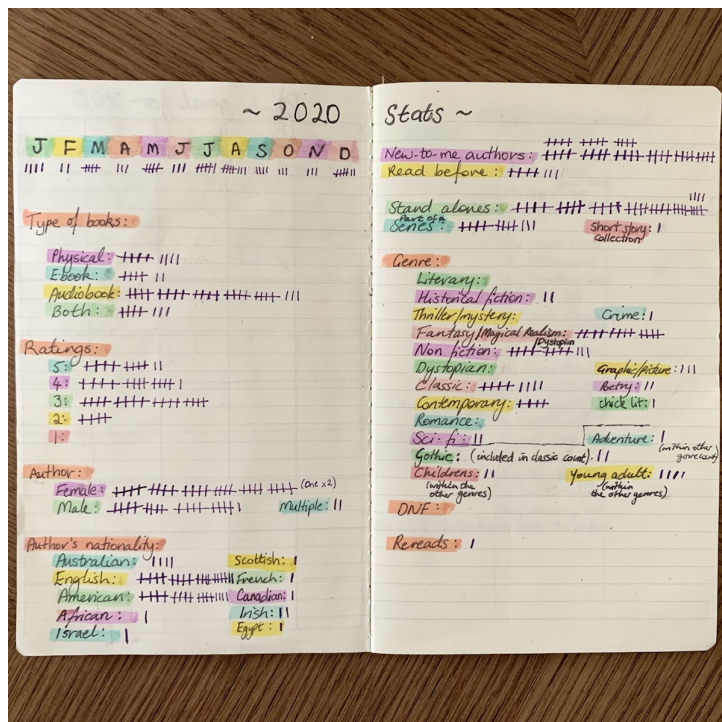 ~ 2020
J F M A M J J A S O N D
Type of books:
Physical:
Ebook:
Audiobook:
Both:
Ratings:
5:
4:
3:
2:
1:
Author:
Female: (one x2)
Male: Multiple:
Author's nationality:
Australian: Scottish:
English: French:
American: Canadian:
African: Irish:
Israel: Egypt:
Stats ~
New-to-me authors:
Read before:
Stand alones:
Part of a
Series: Short story:
collection
Genre:
Literary:
Historical fiction:
Thriller/mystery: Crime:
Fantasy/Magical Realism:
Non fiction: /Dystopian
Dystopian: Graphic/picture:
Classic: Poetry:
Contemporary: chick lit:
Romance:
Sci-fi: Adventure: (within other
genre count)
Gothic: (included in classic count).
Childrens: Young adult:
(within the (within
other genres) the other genres)
DNF:
Rereads: